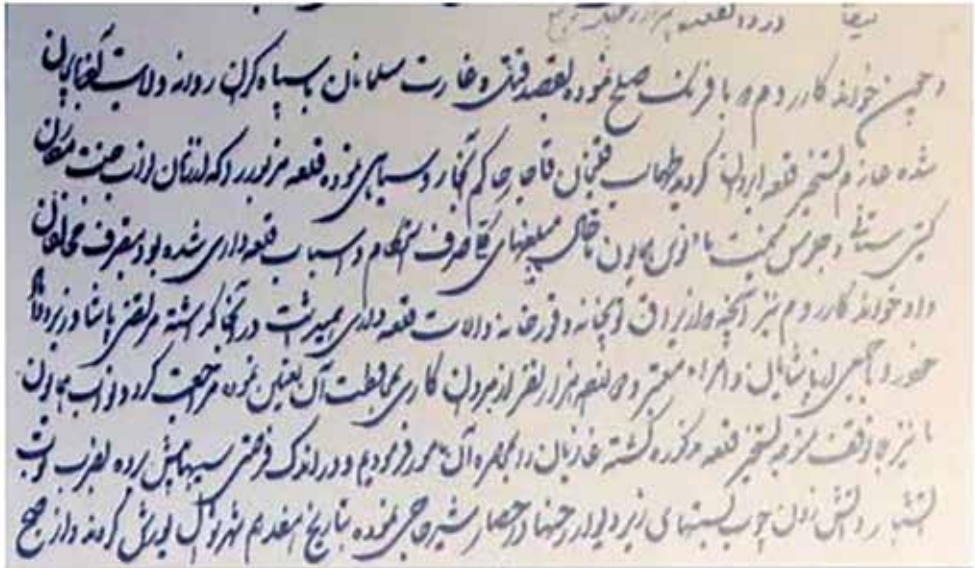 در ذی القعده هزار و
و چون خواندگار روم با فرنک صلح نموده بقصد قتل و غارت مسلمانان با سپاه کران روانه ولایت آذربایجان
شده عازم تسخیر قلعه ایروان کردید طهماسب قلیخان قاجار حاکم آنجا رو سیاهی نموده قلعه مزبور را که از زمان نواب جنت مکان
کیتی ستانی و جلوس میمنت مانوس همایون تا حال مبلغهای کلی صرف استحکام و اسباب قلعه داری شده بود بتصرف مخالفان
داد خواندگار روم نیز آنچه از یراق توپخانه و قورخانه و آلات قلعه داری میبایست در آنجا گذاشته مرتضی پاشا وزیر
خود را با جمعی از پاشایان و امراء معتبر و هزار نفر از مردان کاری بمحافظت آن تعیین نموده مراجعت کرد و نواب همایون
ما نیز بلا توقف متوجه تسخیر قلعه مذکوره گشته غازیان را بمحاصره آن مامور فرمودیم و در اندک فرصتی سیبهها پیش برده بضرب توپ
و آتش زدن چوب بستهای زیر دیوار رخنها در حصار شیر حاجی نموده بتاریخ هفدهم شهر شوال یورش کردند و از صبح